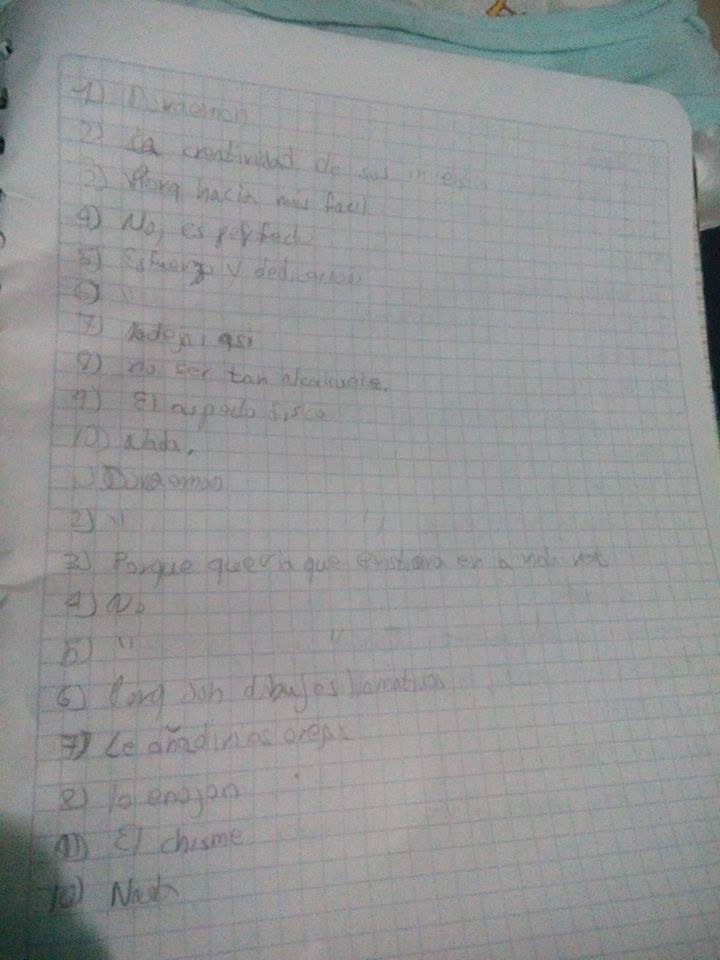 1) Doraemon
2) La creatividad de sus
3) Porq hacia mas facil
4) No, es perfecto
5) Esfuerzo y dedicación
6) "
7) asi
8) no ser tan alcahuete.
9) El aspecto fisico
10) Nada.
1) Doraemon
2) " "
3) Porque queria que existiera en la vida real
4) No
5) " "
6) Porq son dibujos llamativos
7) Le añadiria orejas
8) lo enojan
9) El chisme
10) Nada